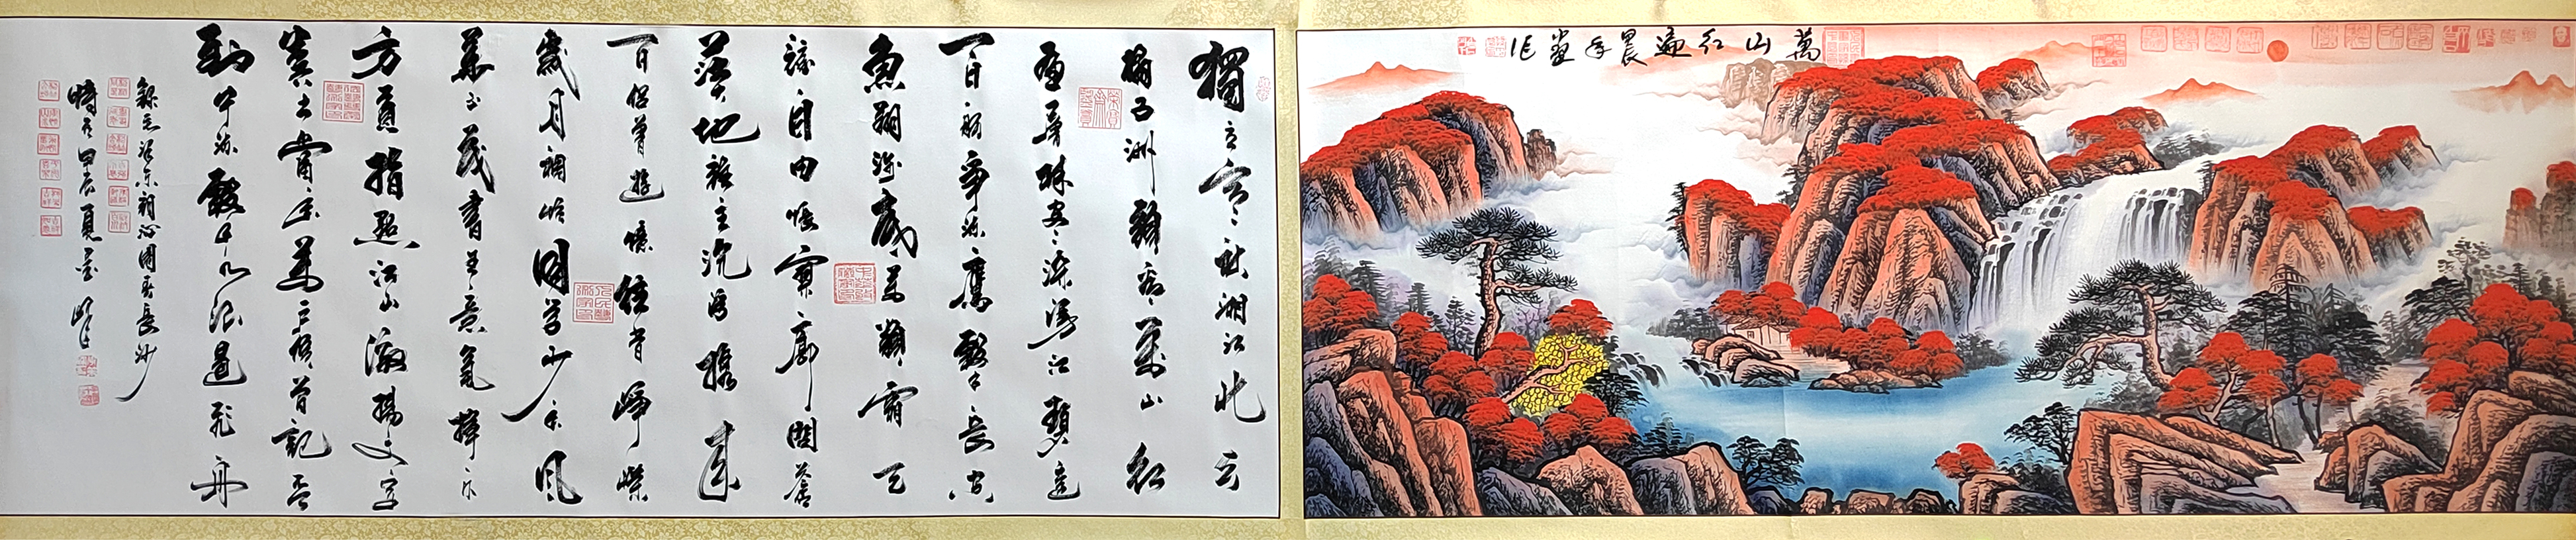 萬山红遍
獨立寒秋湘江北去
橘子洲頭看萬山红
遍層林盡染漫江碧透
百舸争流鹰擊長空
魚翔淺底萬類霜天
競自由怅寥廓問蒼
茫大地誰主沉浮攜来
百侣曾遊憶往昔峥嵘
歲月稠恰同學少年風
華正茂書生意氣揮斥
方遒指點江山激揚文字
糞土當年萬户侯曾記否
到中流擊水浪遏飛舟
錄毛泽东詞沁園春長沙
時在甲辰夏